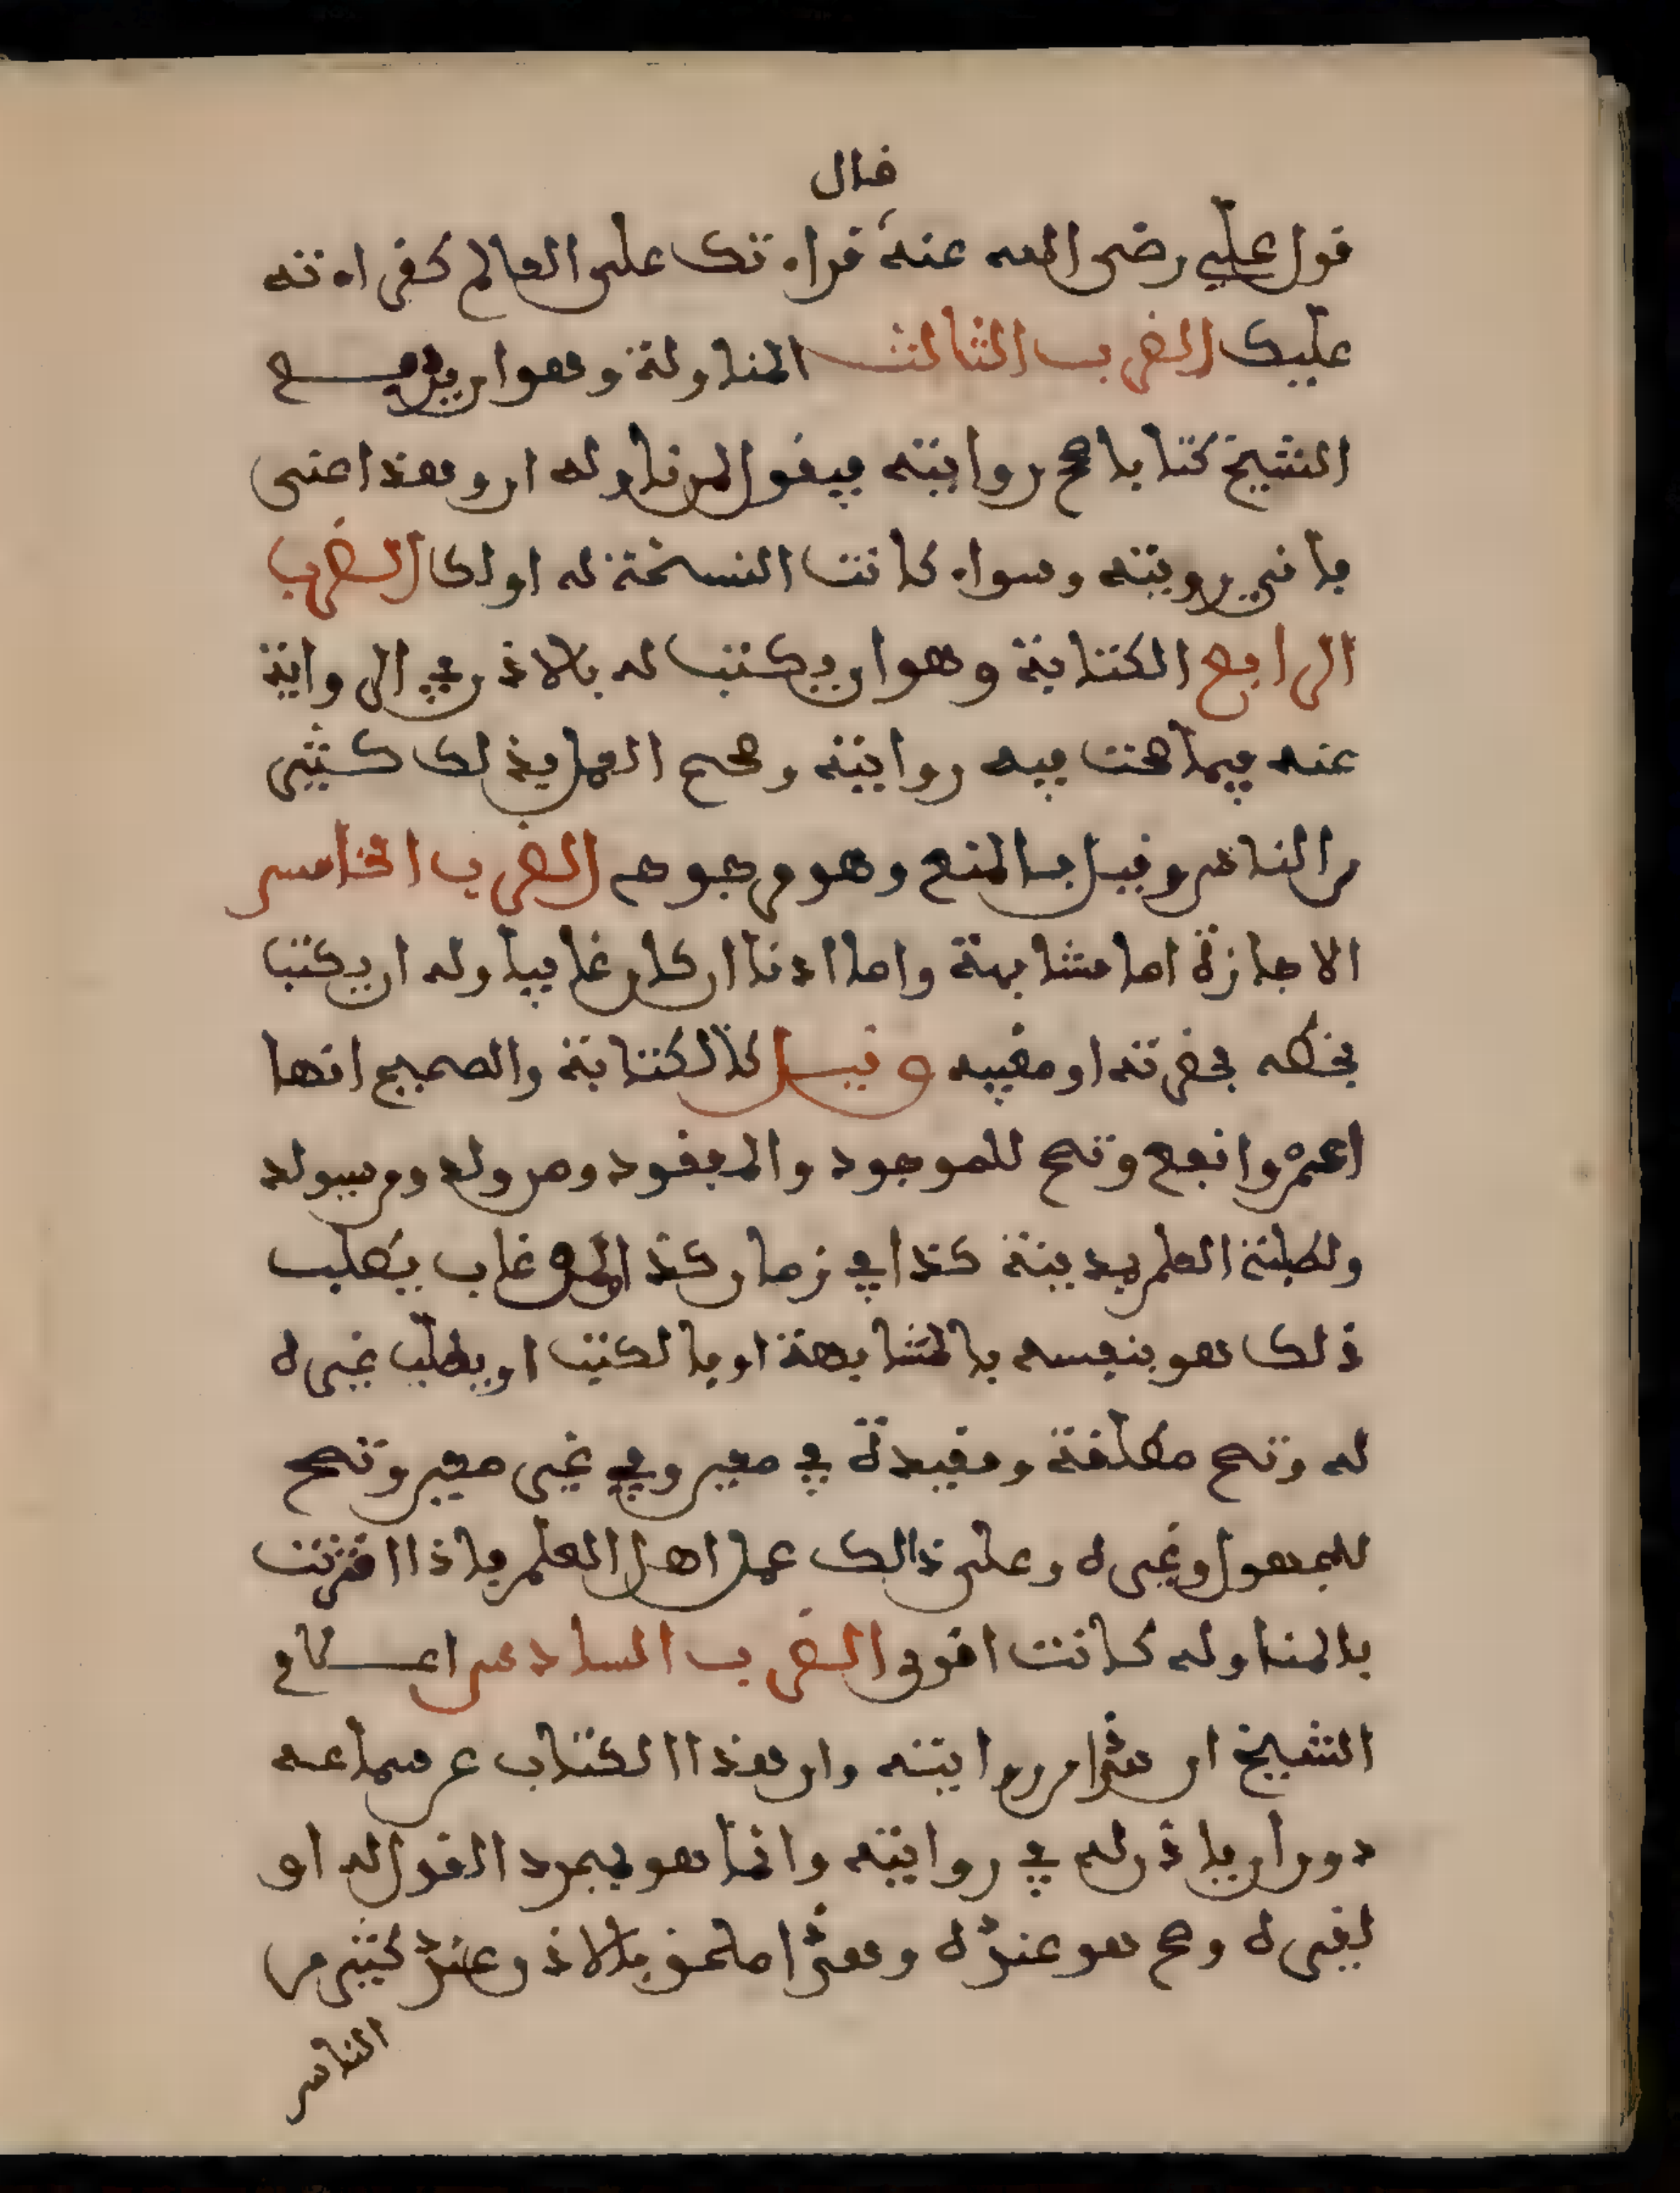 قال
قول علي رضى الله عنه قراءتك على العالم كقراءته
عليك الضرب الثالث المناولة وهو ان يدفع
الشيخ كتابا صح روايته فيقول لمن ناوله ارو هذا عنى
فانى رويته وسواء كانت النسخة له او لك الضرب
الرابع الكتابة وهو ان يكتب له بالاذن في الرواية
عنه فيما صحت فيه روايته وصحح العمل بذلك كثير
من الناس وقيل بالمنع وهو مرجوح الضرب الخامس
الاجازة اما مشابهة واما اذنا ان كان غايبا وله ان يكتب
بخطه بحضرته او مغيبه وقيل كالكتابة والصحيح انها
اعم وانفع وتصح للموجود والمفقود ومن ولد ومن سيولد
ولطلبة العلم بمدينة كذا في زمان كذا لمن غاب بطلب
ذلك هو بنفسه بالمشابهة او بالكتب او بطلب غيره
له وتصح مطلقة ومقيدة في معين وفي غير معين وتصح
للمجهول وغيره وعلى ذالك عمل اهل العلم فاذا اقترنت
بالمناوله كانت اقوى الضرب السادس اعلام
الشيخ ان هذا من روايته وان هذا الكتاب عن سماعه
دون ان ياذن له في روايته وانما هو بمجرد القول له او
لغيره وصح هو عنده وهذا ملحق بالاذن وعند كثير من
الناس